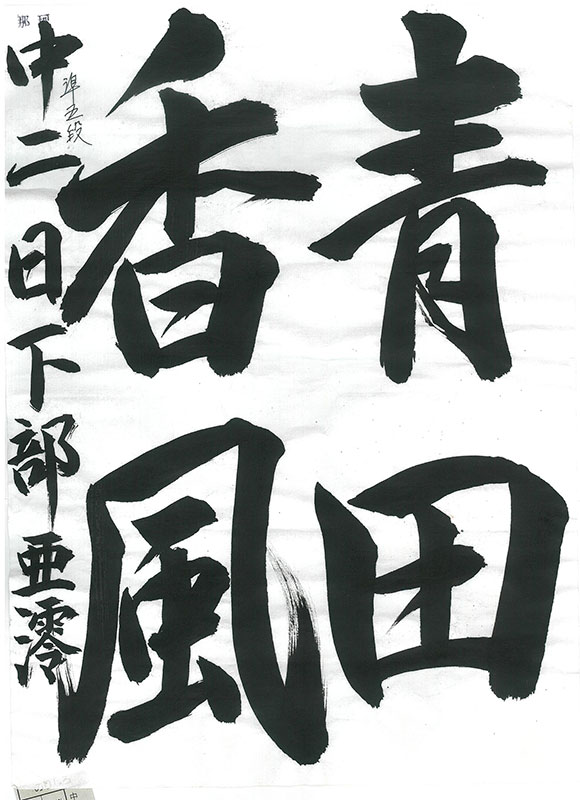 青田
香風
準五段
中二日下部亜澪